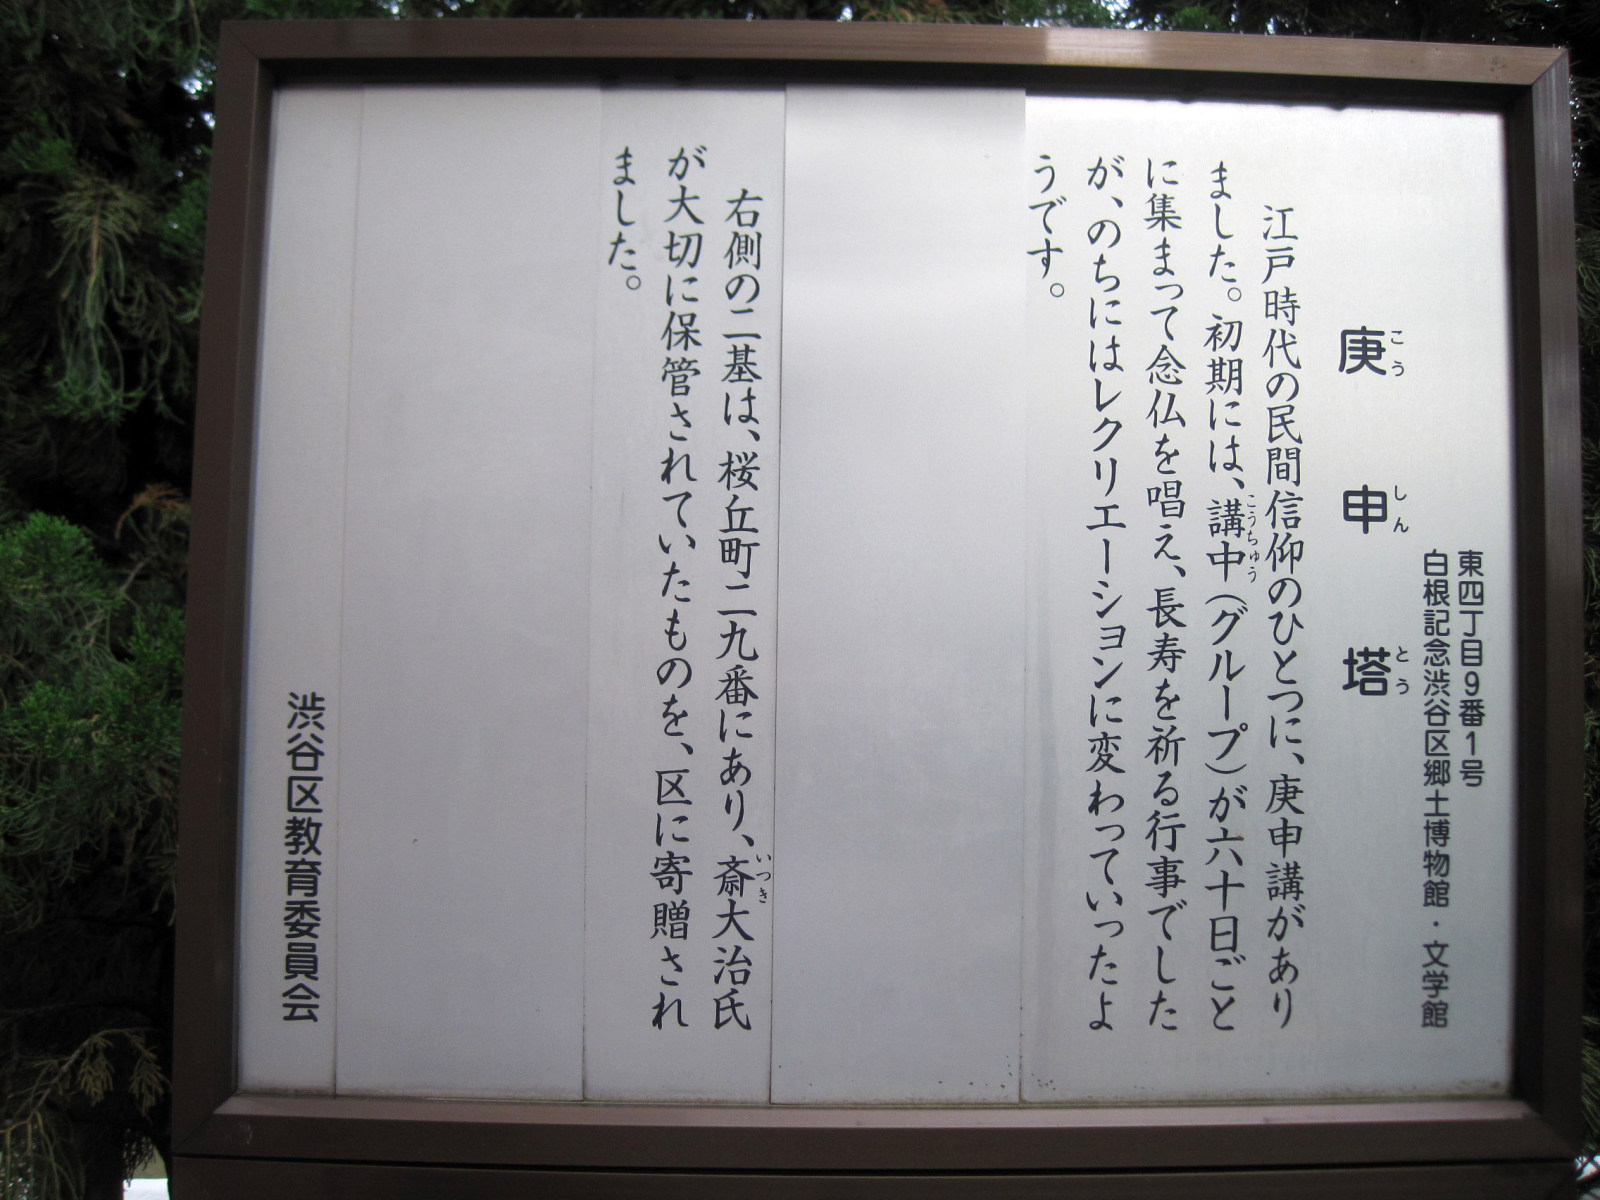 東四丁目9番1号
白根記念渋谷区郷土博物館・文学館
庚申塔
こうしんとう
江戸時代の民間信仰のひとつに、庚申講があり
ました。初期には、講中(グループ)が六十日ごと
こうちゅう
に集まって念仏を唱え、長寿を祈る行事でした
が、のちにはレクリエーションに変わっていったよ
うです。
右側の二基は、桜丘町二九番にあり、斎大治氏
いつき
が大切に保管されていたものを、区に寄贈され
ました。
渋谷区教育委員会